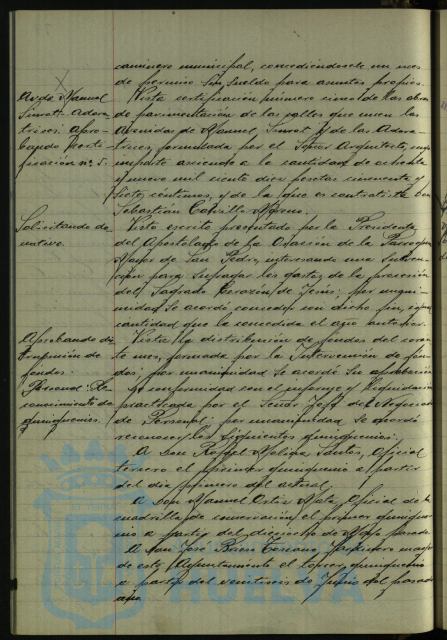 caminero municipal, concediéndosele un mes
de permiso sin sueldo para asuntos propios.
Avda Manuel
Siurot. Adora
trices: Apro-
bando certi-
ficación nº 5.
Vista certificación número cinco de las obras
de pavimentación de las calles que unen las
Avenidas de Manuel Siurot y de las Adora-
trices, formulada por el Señor Arquitecto, cuyo
importe asciende a la cantidad de ochenta
y nueve mil ciento diez pesetas cincuenta y
siete céntimos, y de la que es contratista Don
Sebastián Moreno.
Solicitando do-
nativo.
Visto escrito presentado por la Presidenta
del Apostolado de la Oración de la Parroquia
Mayor de San Pedro, interesando una subven-
ción para sufragar los gastos de la procesión
del Sagrado Corazón de Jesús; por unani-
midad se acordó conceder con dicho fin, igual
cantidad que la concedida el año anterior.
Aprobando dis-
tribución de
fondos.
Vista la distribución de fondos del corrien-
te mes, formada por la Intervención de fon-
dos, por unanimidad se acordó su aprobación
Personal: Re-
conocimiento de
quinquenios.
De conformidad con el informe y liquidación
practicada por el Señor Jefe del Negociado
de Personal, por unanimidad se acordó
reconocer los siguientes quinquenios:
A Don Rafael Molina Santos, Oficial
tercero el primer quinquenio a partir
del día primero del actual.
A Don Manuel Ortiz Mata, Oficial de la
cuadrilla de conservación el primer quinque-
nio a partir del dieciocho de Mayo pasado.
A Don José Toscano, Jardinero mayor
de este Ayuntamiento el tercer quinquenio
a partir del veintiseis de Junio del pasado
año
HUELVA